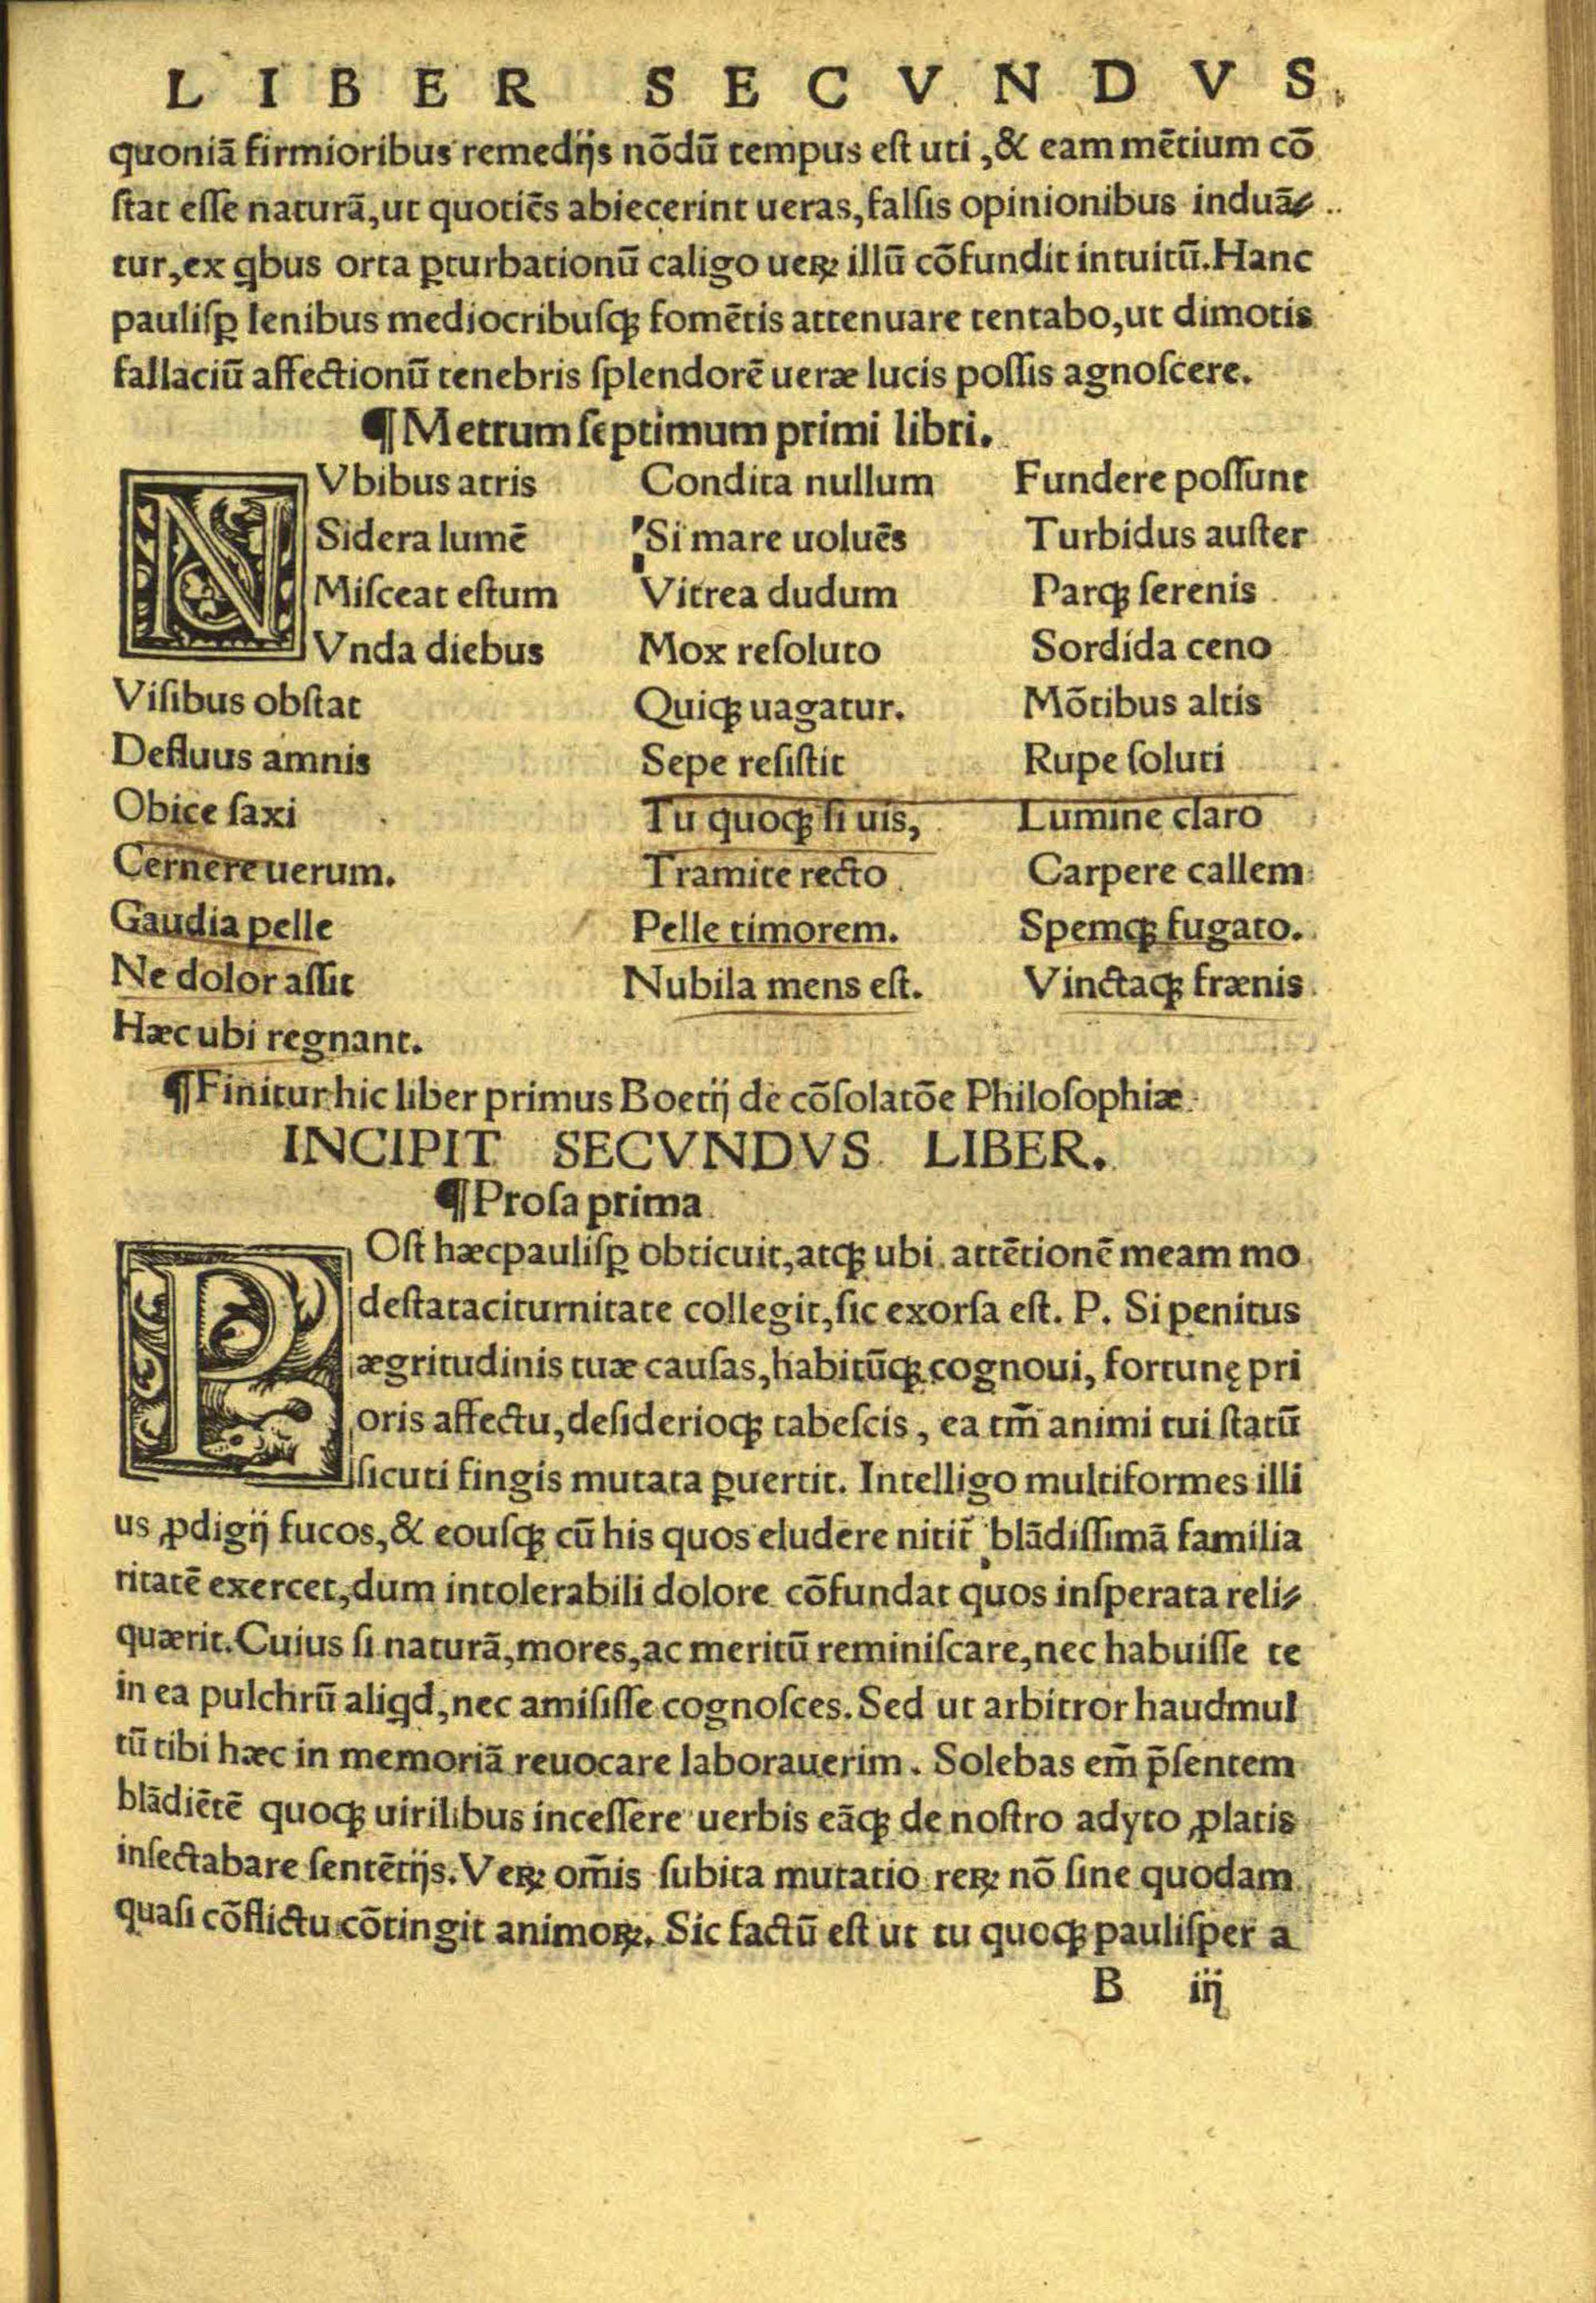 LIBER SECVNDVS.
quoniā firmioribus remedijs nōdū tempus eſt uti, & eam mētium cō
ſtat eſſe naturā, ut quotiēs abiecerint ueras, falſis opinionibus induā⸗
tur, ex ꝗbus orta ꝑturbationū caligo ueꝝ illū cōfundit intuitū. Hanc
pauliſꝑ lenibus mediocribuſqꝫ fomētis attenuare tentabo, ut dimotis
fallaciū affectionū tenebris ſplendorē ueræ lucis poſſis agnoſcere.
¶ Metrum ſeptimum primi libri.
NVbibus atris Condita nullum Fundere poſſunt
Sidera lumē Si mare uoluēs Turbidus auſter
Miſceat eſtum Vitrea dudum Parqꝫ ſerenis
Vnda diebus Mox reſoluto Sordida ceno
Viſibus obſtat Quiqꝫ uagatur. Mōtibus altis
Defluus amnis Sepe reſiſtit Rupe ſoluti
Obice ſaxi Tu quoqꝫ ſi uis, Lumine claro
Cernere uerum. Tramite recto Carpere callem
Gaudia pelle Pelle timorem. Spemqꝫ fugato.
Ne dolor aſſit Nubila mens eſt. Vinctaqꝫ frænis
Hæc ubi regnant.
¶ Finitur hic liber primus Boetij de cōſolatōe Philoſophiæ
INCIPIT SECVNDVS LIBER.
¶ Proſa prima
POſt hæcpauliſꝑ obticuit, atqꝫ ubi attētionē meam mo
deſtataciturnitate collegit, ſic exorſa eſt. P. Si penitus
ægritudinis tuæ cauſas, habitūqꝫ cognoui, fortunę pri
oris affectu, deſiderioqꝫ tabeſcis, ea tm̄ animi tui ſtatū
ſicuti fingis mutata ꝑuertit. Intelligo multiformes illi
us ꝓdigij fucos, & eouſqꝫ cū his quos eludere nitit᷑ blādiſſimā familia
ritatē exercet, dum intolerabili dolore cōfundat quos inſperata reli⸗
quærit. Cuius ſi naturā, mores, ac meritū reminiſcare, nec habuiſſe te
in ea pulchrū aliꝗd, nec amiſiſſe cognoſces. Sed ut arbitror haudmul
tū tibi hæc in memoriā reuocare laborauerim. Solebas em̄ p̄ſentem
blādiētē quoqꝫ uirilibus inceſſere uerbis eāqꝫ de noſtro adyto ꝓlatis
inſectabare ſentētijs. Veꝝ om̄is ſubita mutatio reꝝ nō ſine quodam
quaſi cōflictu cōtingit animoꝝ. Sic factū eſt ut tu quoqꝫ pauliſper a
B iij